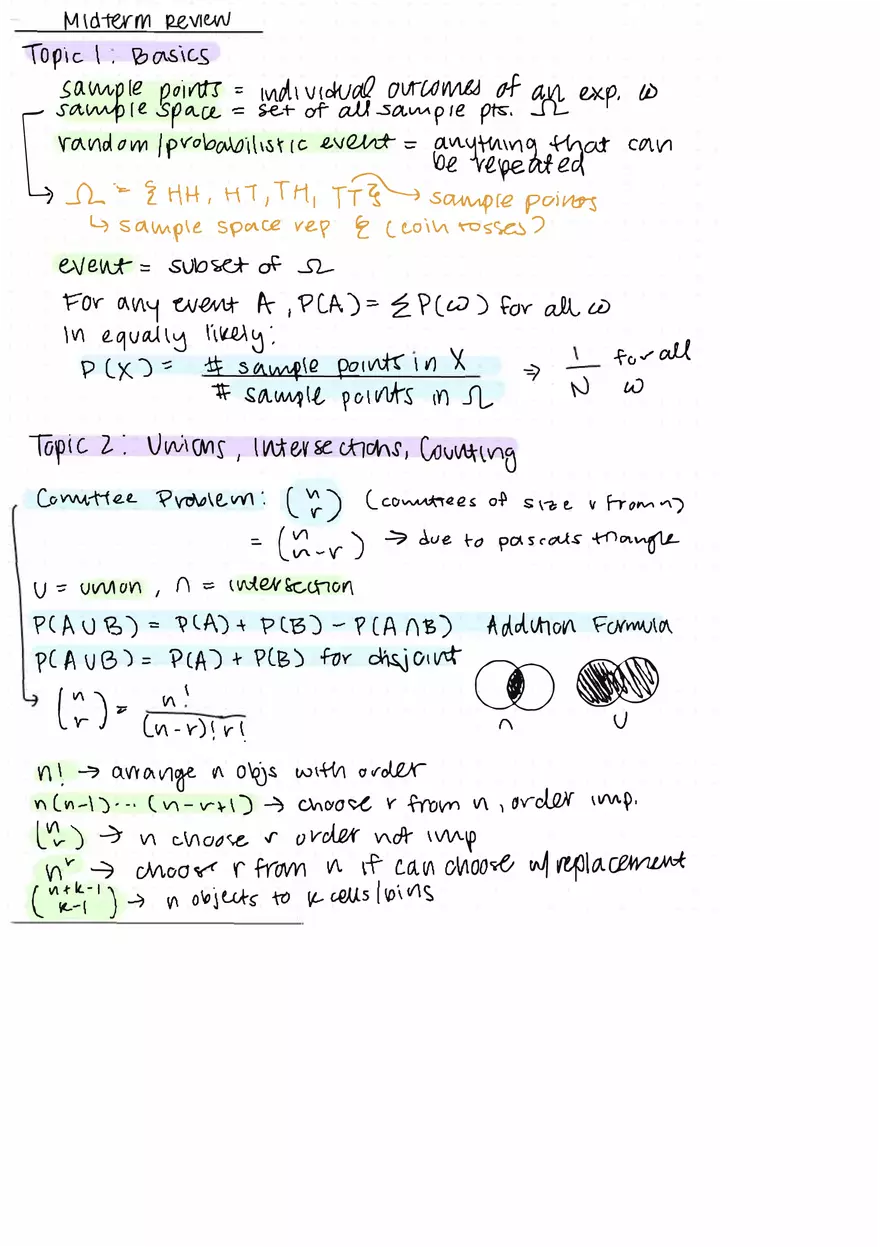 Midterm Review
Topic 1: Basics
sample points = individual outcomes of an exp. ω
sample space = set of all sample pts. Ω
random/probabilistic event = anything that can
be repeated
Ω = {HH, HT, TH, TT} → sample points
↳ sample space rep { (coin tosses)
event = subset of Ω
For any event A, P(A) = ΣP(ω) for all ω
In equally likely:
P(X) = # sample points in X / # sample points in Ω ⇒ 1/N for all ω
Topic 2: Unions, Intersections, Counting
Committee Problem: (n r) (committees of size r from n)
= (n n-r) → due to pascals triangle
U = union, ∩ = intersection
P(A∪B) = P(A) + P(B) - P(A∩B) Addition Formula
P(A∪B) = P(A) + P(B) for disjoint
(n r) = n! / (n-r)! r!
∩ U
n! → arrange n objs with order
n(n-1)...(n-r+1) → choose r from n, order imp.
(n r) → n choose r order not imp
n^r → choose r from n if can choose w/ replacement
(n+k-1 k-1) → n objects to k cells/bins